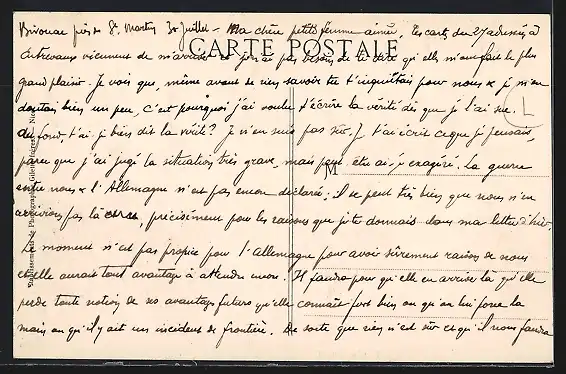 Bivouac près de St Martin 30 Juillet - Ma chère petite femme aimée, les cartes du 27 adressées à
CARTE POSTALE
Entrevaux viennent de m'arriver et je n'ai pas besoin de te dire qu'elles m'ont fait le plus
grand plaisir. Je vois que, même avant de rien savoir tu t'inquiétais pour nous & je m'en
doutais bien un peu, c'est pourquoi j'ai voulu t'écrire la vérité dès que je l'ai sue.
Au fond, t'ai-je bien dit la vérité? Je n'en suis pas sûr. Je t'ai écrit ce que je pensais,
parce que j'ai jugé la situation très grave, mais peut-être ai-je exagéré. La guerre
entre nous & l'Allemagne n'est pas encore déclarée; il se peut très bien que nous n'en
arrivions pas là, précisément pour les raisons que je te donnais dans ma lettre d'hier.
Le moment n'est pas propice pour l'Allemagne pour avoir sûrement raison de nous
et elle aurait tout avantage à attendre encore. Il faudra pour qu'elle en arrive là qu'elle
perde toute notion de ses avantages futurs qu'elle connaît fort bien ou qu'on lui force la
main ou qu'il y ait un incident de frontière. De sorte que rien n'est sûr et qu'il nous faudra
M
Établissements de Photographie, Giletta, frères, Nice